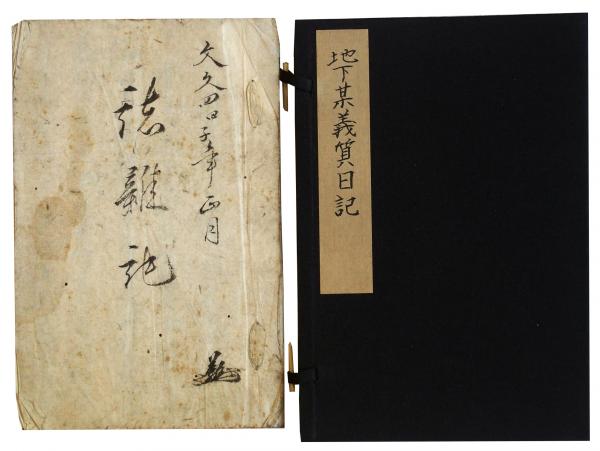 文久四甲子年正月
諸雜記
地下某義質日記